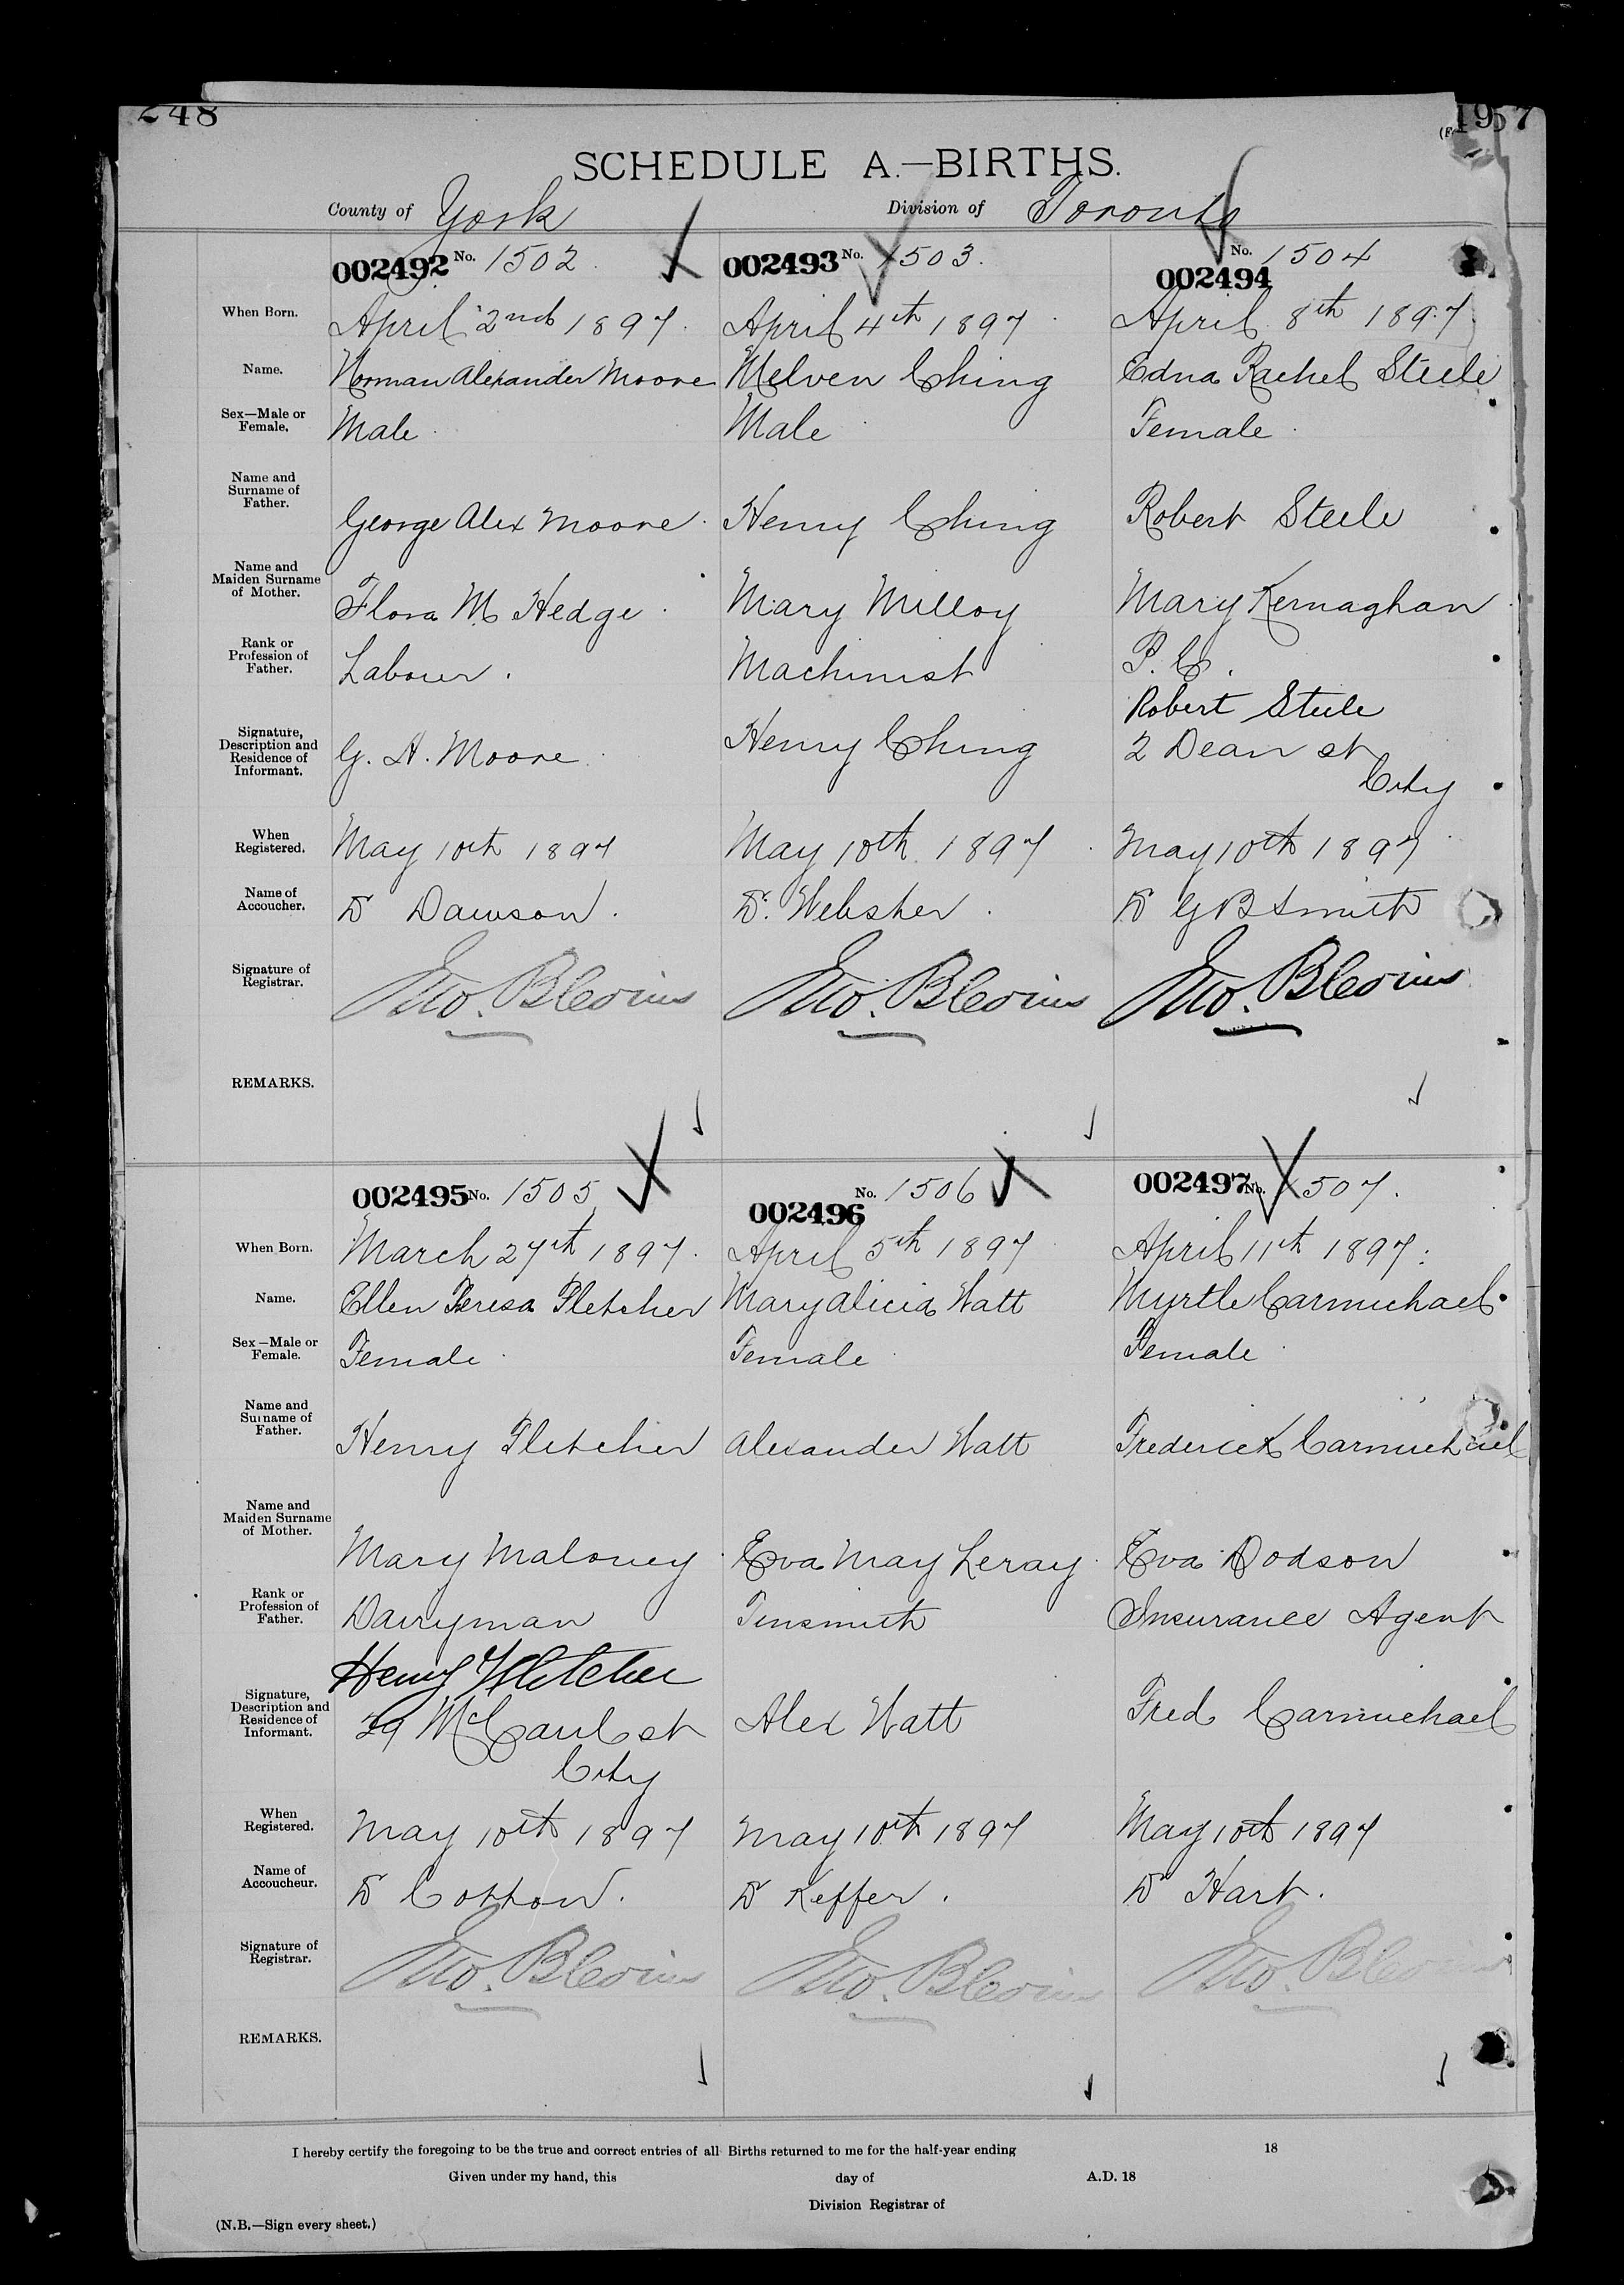 248
1957
SCHEDULE A.—BIRTHS.
County of York Division of Toronto
002492 No. 1502. 002493 No. 1503. 002494 No. 1504
When Born. April 2nd 1897. April 4th 1897. April 8th 1897.
Name. Norman Alexander Moore Melven Ching Edna Rachel Steele
Sex—Male or Female. Male Male Female
Name and Surname of Father. George Alex Moore. Henry Ching Robert Steele
Name and Maiden Surname of Mother. Flora M. Hedge. Mary Milloy Mary Kernaghan
Rank or Profession of Father. Labour. Machinist P.C.
Signature, Description and Residence of Informant. G. A. Moore Henry Ching Robert Steele
2 Dean st
City
When Registered. May 10th 1897 May 10th 1897. May 10th 1897
Name of Accoucher. Dr Dawson. Dr. Webster. Dr G B Smith
Signature of Registrar. Jno. Blevins Jno. Blevins Jno. Blevins
REMARKS.
002495 No. 1505 002496 No. 1506 002497 No. 1507.
When Born. March 27th 1897. April 5th 1897 April 11th 1897.
Name. Ellen Teresa Fletcher Mary Alicia Watt Myrtle Carmichael
Sex—Male or Female. Female Female Female
Name and Surname of Father. Henry Fletcher Alexander Watt Frederick Carmichael
Name and Maiden Surname of Mother. Mary Maloney Eva May Leray Eva Dodson
Rank or Profession of Father. Dairyman Tinsmith Insurance Agent
Signature, Description and Residence of Informant. Henry Fletcher Alex Watt Fred Carmichael
McCaul st
City
When Registered. May 10th 1897 May 10th 1897 May 10th 1897
Name of Accoucheur. Dr Cotton. Dr Keffer. Dr Hart.
Signature of Registrar. Jno. Blevins Jno. Blevins Jno. Blevins
REMARKS.
I hereby certify the foregoing to be the true and correct entries of all Births returned to me for the half-year ending 18
Given under my hand, this day of A.D. 18
Division Registrar of
(N.B.—Sign every sheet.)